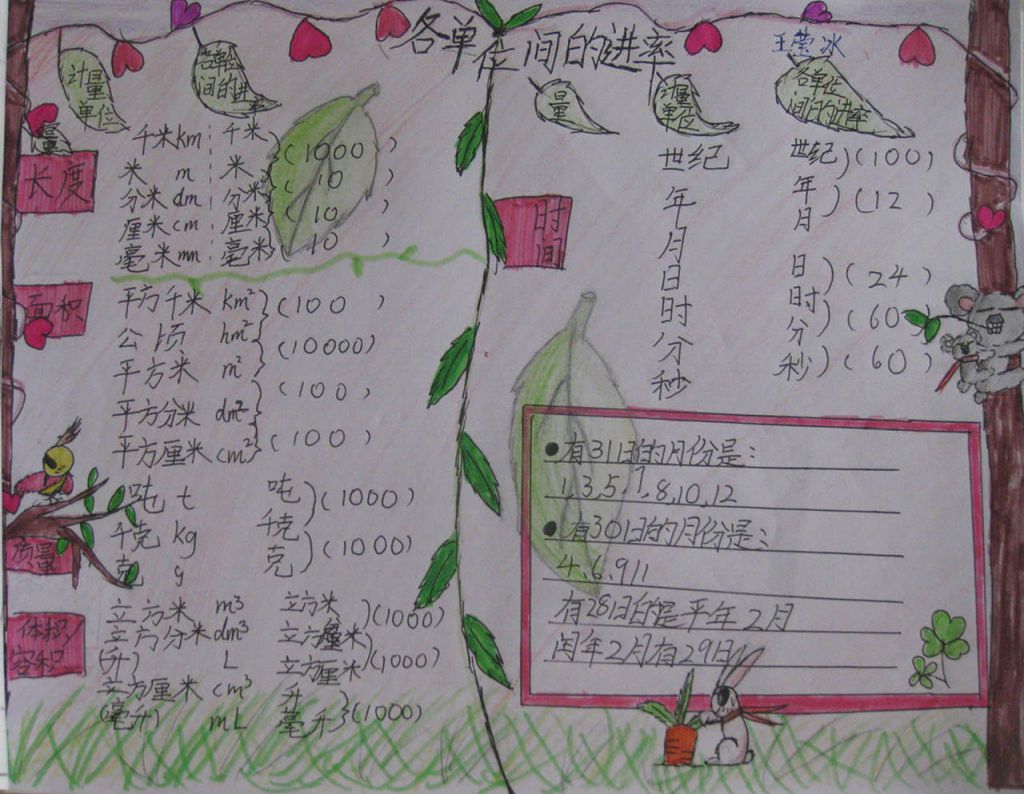 各单位间的进率
王莹冰
计量单位
各单位间的进率
量
长度
千米km 千米
米 m 米
分米dm 分米
厘米cm 厘米
毫米mm 毫米
(1000)
(10)
(10)
(10)
面积
平方千米 km²
公顷 hm²
平方米 m²
平方分米 dm²
平方厘米 cm²
(100)
(10000)
(100)
(100)
质量
吨 t 吨
千克 kg 千克
克 g 克
(1000)
(1000)
体积/
容积
立方米 m³ 立方米
立方分米dm³
(升) L 立方厘米
立方厘米 cm³ 升
(毫升) mL 毫升
(1000)
(1000)
(1000)
量
计量单位
各单位间的进率
时间
世纪 世纪
年 年
月 月
日 日
时 时
分 分
秒 秒
(100)
(12)
(24)
(60)
(60)
有31日的月份是:
1,3,5,7,8,10,12
有30日的月份是:
4、6、9 11
有28日的是平年2月
闰年2月有29日